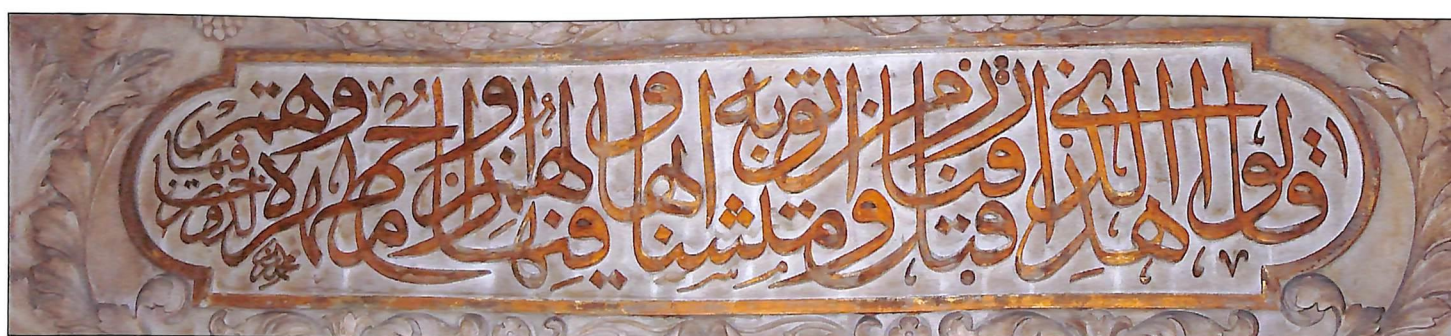 قالوا هذا الذي رزقنا من قبل واتوا به متشابها ولهم فيها ازواج مطهرة وهم فيها خالدون